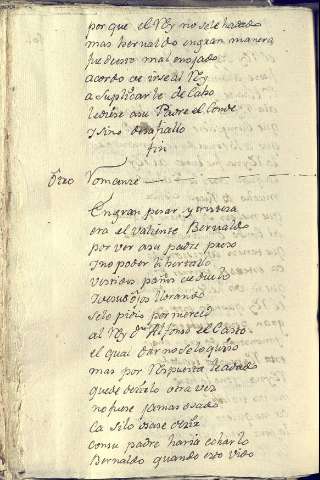 por que el Rey no se le ha dado
mas bernaldo en gran manera
fue desto mal enojado
acordo de irse al Rey
a suplicarle de cabo
le diese a su Padre el Conde
y sino desafiallo
fin
Otro Romance
En gran pesar y tristeza
era el valiente Bernaldo
por ver a su padre preso
y no poder libertallo
vestidos paños de duelo
y de sus ojos llorando
se lo pidio por merced
al Rey Dn Alfonso el Casto
el qual dar no se lo quiso
mas por Respuesta le a dado
que de decirlo otra vez
no fuese jamas osado
ca si lo osase decir
con su padre haria echarlo
Bernaldo quando esto vido